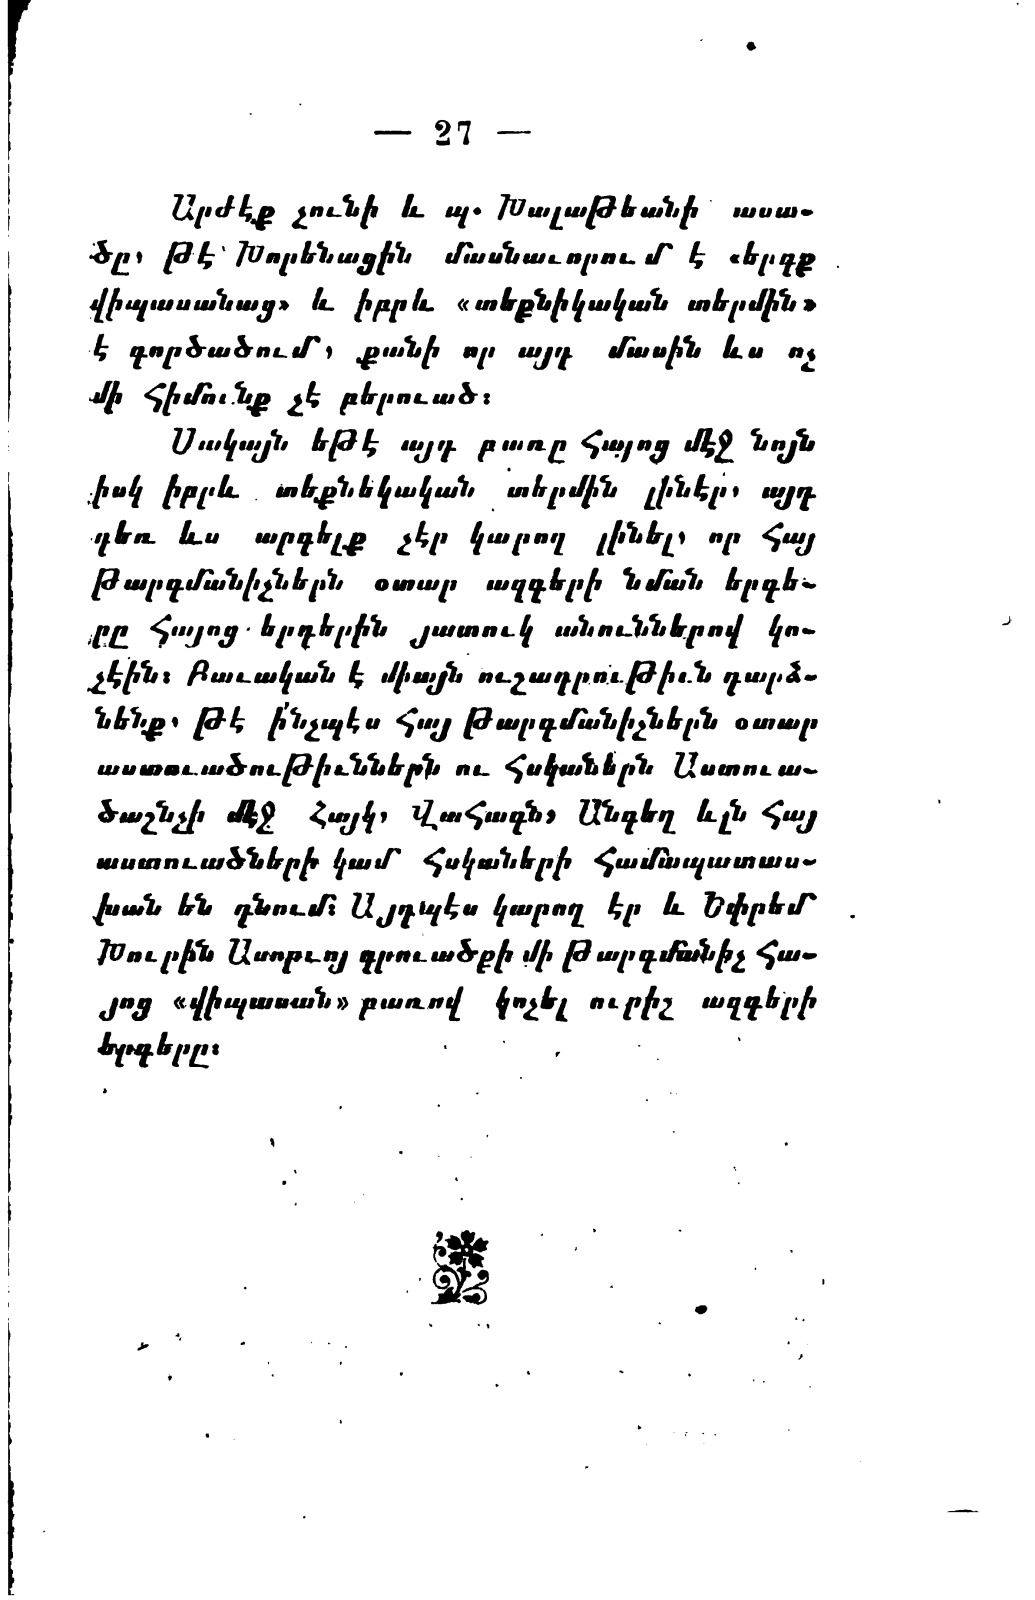 — 27 —
Արժէք չունի և պ. Խալաթեանի ասա-
ծը, թէ Խորենացին մասնաւորում է «երգք
վիպասանաց» և իբրև «տեքնիկական տերմին»
է գործածում, քանի որ այդ մասին ևս ոչ
մի հիմունք չէ բերուած:
Սակայն եթէ այդ բառը հայոց մէջ նոյն
իսկ իբրև տեքնեկական տերմին լինէր, այդ
դեռ ևս արգելք չէր կարող լինել, որ հայ
թարգմանիչներն օտար ազգերի նման երգե-
րը հայոց երգերին յատուկ անուններով կո-
չէին: Բաւական է միայն ուշադրութիւն դարձ-
նենք, թէ ի՛նչպէս հայ թարգմանիչներն օտար
աստուածութիւններն ու հսկաներն Աստուա-
ծաշնչի մէջ Հայկ, Վահագն, Անգեղ ևլն հայ
աստուածների կամ հսկաների համապատաս-
խան են դնում: Այդպէս կարող էր և Եփրեմ
Խուրին Ասորւոյ գրուածքի մի թարգմանիչ հա-
յոց «վիպասան» բառով կոչել ուրիշ ազգերի
երգերը: